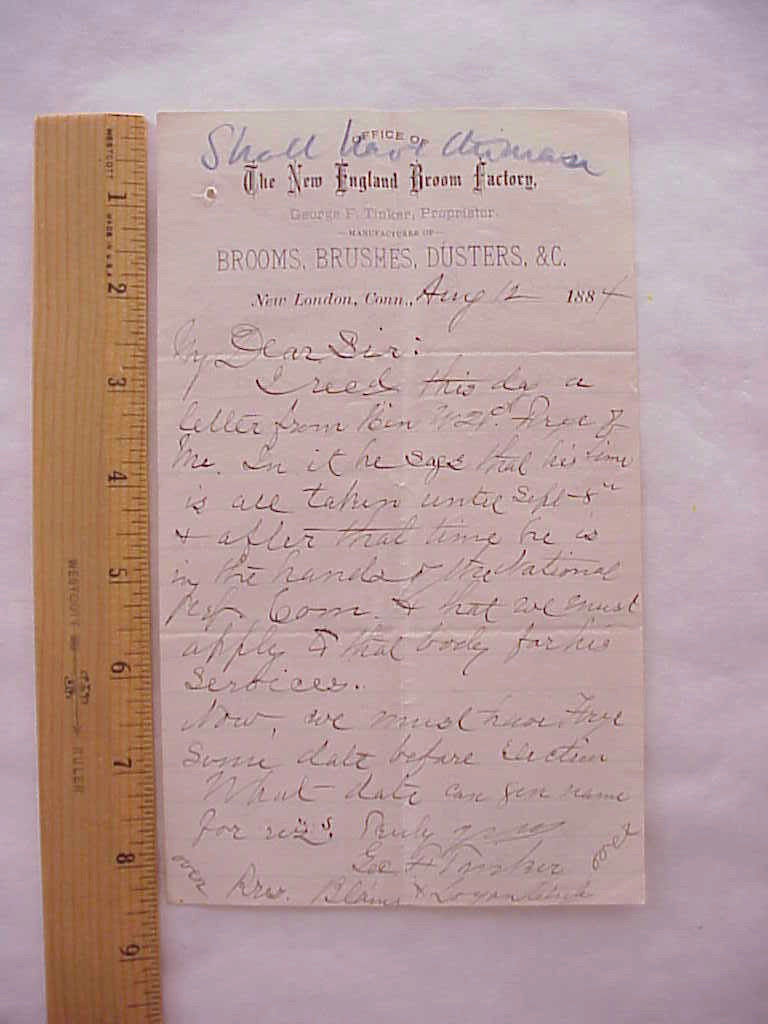 Shall have
OFFICE OF
The New England Broom Factory,
George F. Tinker, Proprietor.
—MANUFACTURER OF—
BROOMS, BRUSHES, DUSTERS, &C.
New London, Conn., Aug 12 1884
My Dear Sir:
I recd this day a
letter from Hon Wm P. Frye of
Me. In it he says that his time
is all taken until Sept 8th
& after that time he is
in the hands of the National
Rep. Com. & that we must
apply to that body for his
services.
Now, we must have Frye
some date before election
What date can you name
for us. Truly yours
Geo F Tinker
over
over
Pres. Blaine & Logan Club
WESTCOTT
MADE IN U.S.A.
1
2
3
4
5
6
7
8
9
WESTCOTT
RULER